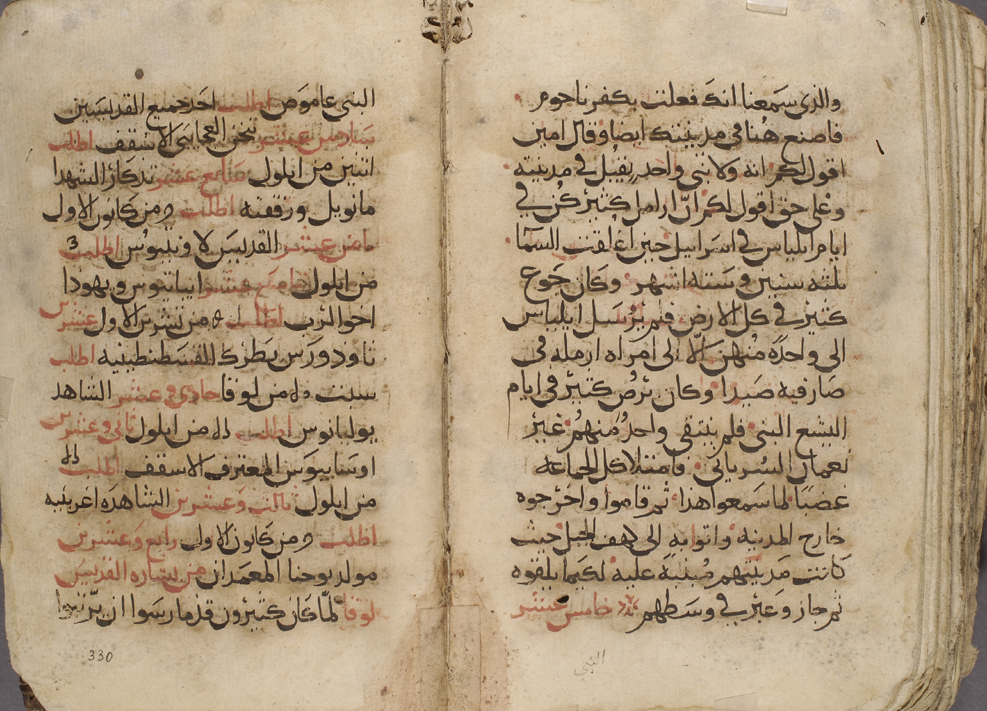 والذي سمعنا انك فعلت بكفرناحوم
فاصنع هنا في مدينتك ايضا وقال امين
اقول لكم انه ولا نبي واحد يقبل في مدينته
وعلى حق اقول لكم ان ارامل كثير كن في
ايام ايلياس في اسراييل حين اغلقت السما
ثلثه سنين وسته اشهر وكان جوع
كثير في كل الارض فلم يرسل ايلياس
الى واحده منهن الا الى امراه ارمله في
صارفيه صيدا وكان برص كثير في ايام
اليشع النبي فلم ينتقى واحد منهم غير
نعمان السرياني فامتلا كل الجماعه
غضبا لما سمعوا هذا ثم قاموا واخرجوه
خارج المدينه واتوا به الى كهف الجبل حيث
كانت مدينتهم مبنية عليه لكيما يلقوه
ثم جاز وعبر في وسطهم خامس عشر
النبي
النبي عاموص اطلب احد جميع القديسين
سادس عشر الاسقف اطلب
اثنين من ايلول سابع عشر تذكار الشهدا
مانويل ورفقته اطلب من كانون الاول
ثامن عشر القديس لاونتيوس اطلب
من ايلول تاسع عشر ويهوذا
اخو الرب اطلب من تشرين الاول عشرين
تاودورس بطرك القسطنطينيه اطلب
سبت من لوقا حادي وعشرين الشاهد
يوليانوس اطلب من ايلول ثاني وعشرين
اوسابيوس المعترف الاسقف اطلب
من ايلول ثالث وعشرين الشاهده اغربينه
اطلب من كانون الاول رابع وعشرين
مولد يوحنا المعمدان من بشاره القديس
لوقا لما كان كثيرون قد مارسوا ان يرتبوا
330